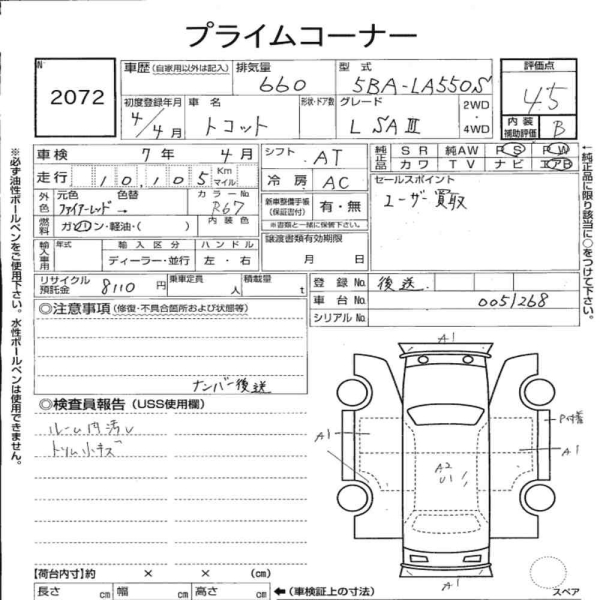 プライムコーナー
No.
2072
車歴 (自家用以外は記入)
排気量
660
型式
5BA-LA550S
評価点
4.5
初度登録年月
4/4月
車名
トコット
形状・ドア数
グレード
L SAⅢ
2WD・4WD
内装補助評価
B
車検
7年 4月
シフト
AT
純正品
SR 純AW PS PW
カワ TV ナビ エアB
走行
10,105
Km
マイル
冷房
AC
セールスポイント
ユーザー買取
外色
元色
ファイアーレッド→
色替
カラーNo.
R67
新車整備手帳
(保証書付)
有・無
※書類と一緒に保管下さい。
燃料
ガソリン・軽油・( )
内装色
譲渡書類有効期限
月 日
輸入車用
年式
輸入区分
ディーラー・並行
ハンドル
左・右
リサイクル預託金
8110円
乗車定員
人
積載量
t
登録No.
後送
車台No.
0051268
シリアルNo.
◎注意事項 (修復・不具合箇所および状態等)
ナンバー後送
◎検査員報告 (USS使用欄)
ルーム内汚レ
トリム小キズ
A1
A1
P付着
A1
A2
U1
A1
【荷台内寸】約 × × (cm)
長さ cm 幅 cm 高さ cm
←(車検証上の寸法)
スペア
※必ず油性ボールペンをご使用下さい。水性ボールペンは使用できません。
←純正品に限り該当に○をつけて下さい。